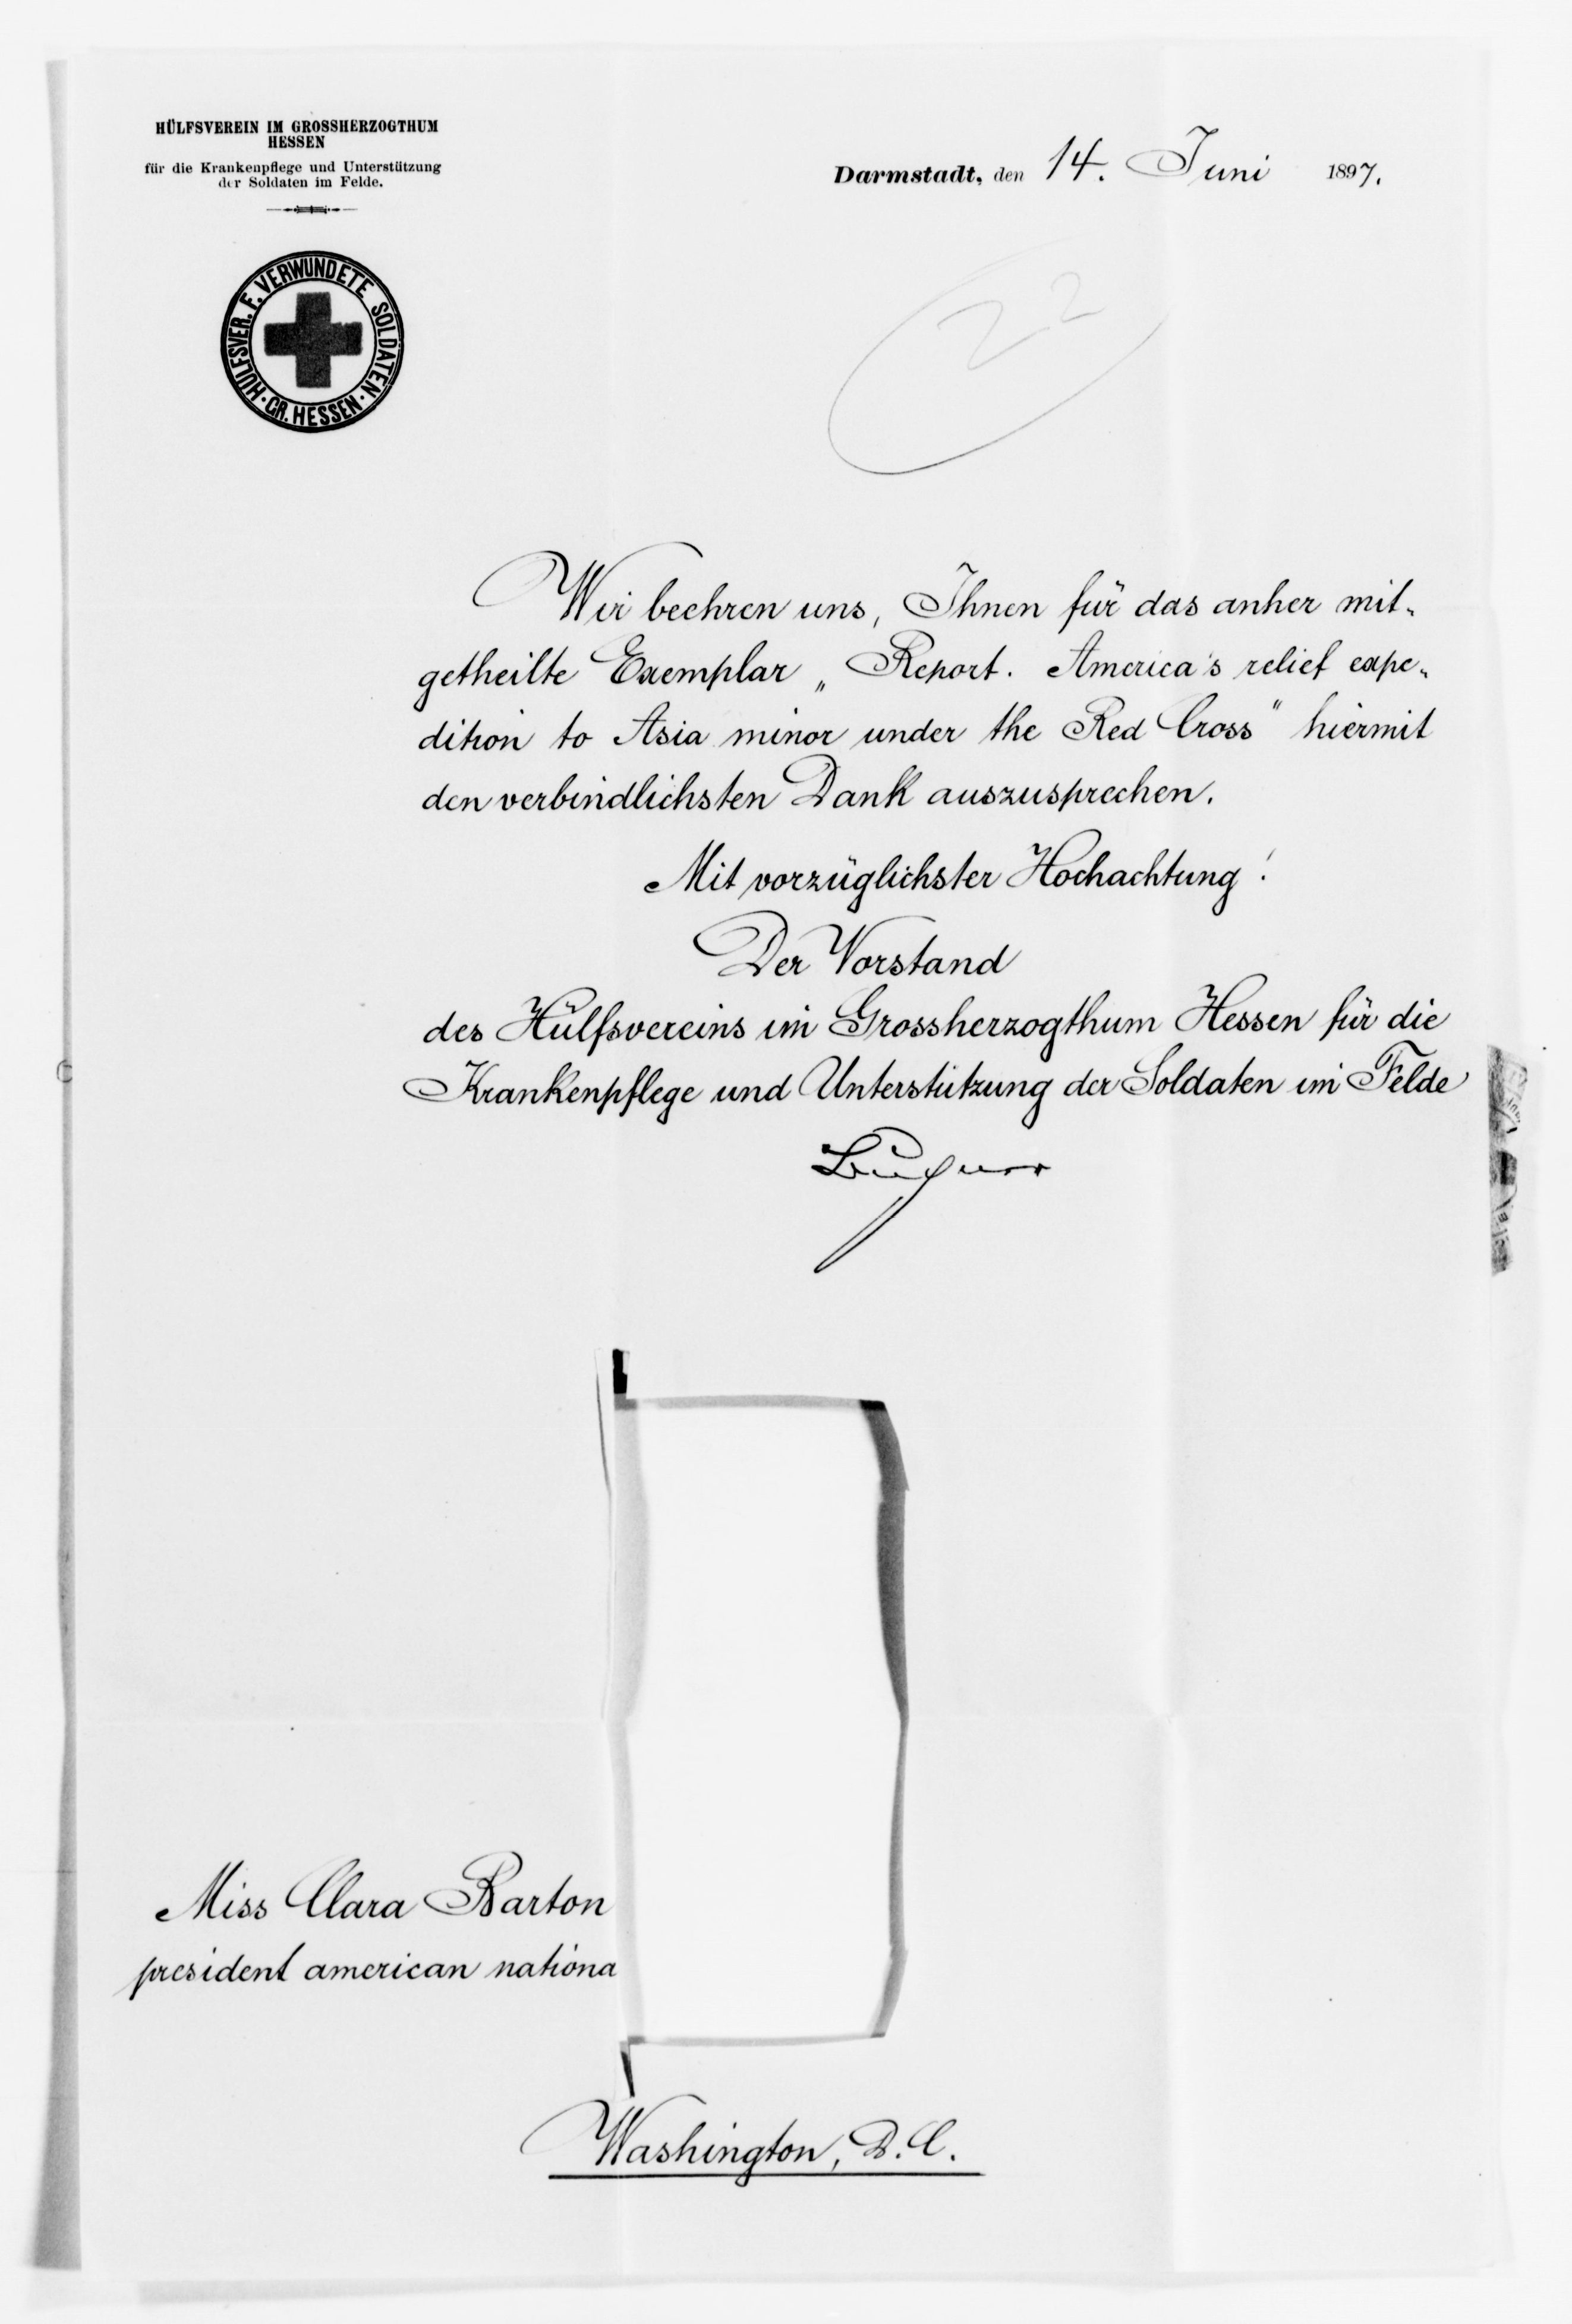 HÜLFSVEREIN IM GROSSHERZOGTHUM
HESSEN
für die Krankenpflege und Unterstützung
der Soldaten im Felde.
HÜLFSVER. F. VERWUNDETE SOLDATEN · GR. HESSEN ·
Darmstadt, den 14. Juni 1897.
22
Wir beehren uns, Ihnen für das anher mit-
getheilte Exemplar „Report. America's relief expe-
dition to Asia minor under the Red Cross" hiermit
den verbindlichsten Dank auszusprechen.
Mit vorzüglichster Hochachtung!
Der Vorstand
des Hülfsvereins im Grossherzogthum Hessen für die
Krankenpflege und Unterstützung der Soldaten im Felde
Miss Clara Barton
president american nationa
Washington, D.C.